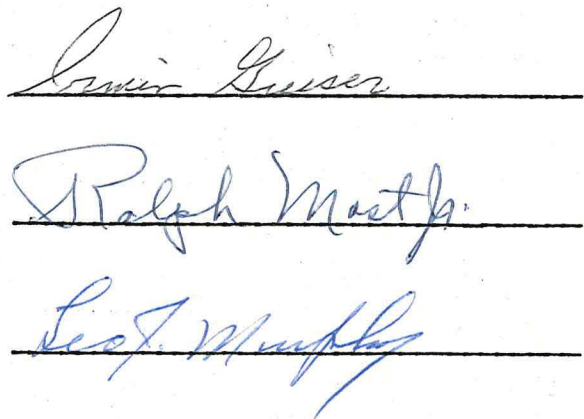 Irwin Geiser
Ralph Mast Jr.
Leo J. Murphy